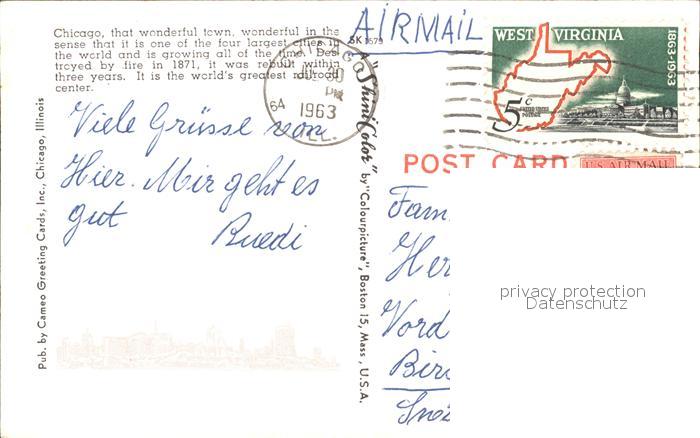 Chicago, that wonderful town, wonderful in the
sense that it is one of the four largest cities in
the world and is growing all of the time. Des-
troyed by fire in 1871, it was rebuilt within
three years. It is the world's greatest railroad
center.
SK 1579
AIRMAIL
CHICAGO
PM
1963
64
ILL.
WEST VIRGINIA
1863-1963
5c
UNITED STATES
POSTAGE
POST CARD
U.S. AIR MAIL
Viele Grüsse von
Hier. Mir geht es
gut
Ruedi
Pub. by Cameo Greeting Cards, Inc., Chicago, Illinois
"ShiniColor" by "Colourpicture", Boston 15, Mass., U.S.A.
Fam.
Her
Vord
Bir
privacy protection
Datenschutz